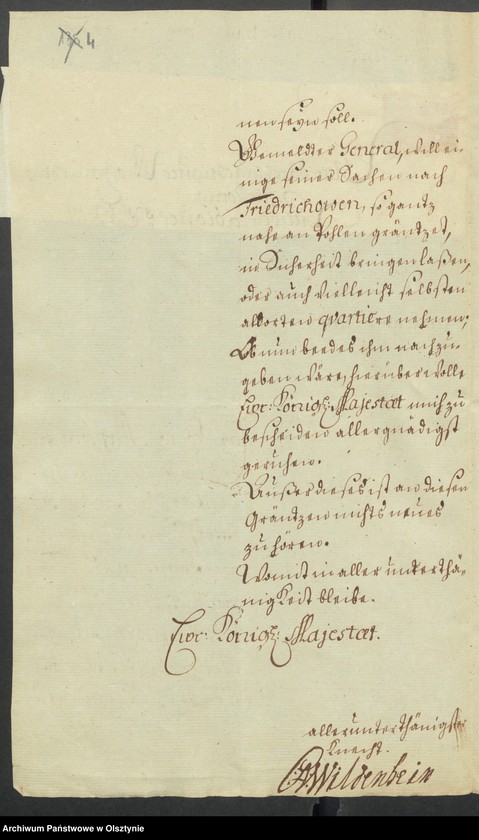 4
nen seyn soll.
Gemeldter General, will ei-
nige seiner Sachen nach
Friedrichowen, so gantz
nahe an Pohlen gräntzet,
in Sicherheit bringen laßen,
oder auch vielleicht selbsten
aldorten quartiere nehmen;
Ob nun beedes ihm nachzu-
geben wäre, hierüber wolle
Ewr: Königl: Majestaet mich zu
bescheiden allergnädigst
geruhen.
Außer dieses ist an diesen
Gräntzen nichts neues
zu hören.
Womit in aller unterthä-
nigkeit bleibe.
Ewr: Königl: Majestaet.
allerunterthänigster
Knecht.
Wildenhein
Archiwum Państwowe w Olsztynie